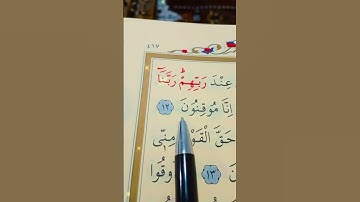 ٤١٧
عِنْدَ رَبِّهِمْۜ رَبَّنَٓا
اِنَّا مُوقِنُونَ ﴿١٢﴾
حَقَّ الْقَوْلُ مِنّ۪ي
﴿١٣﴾ وقُوا